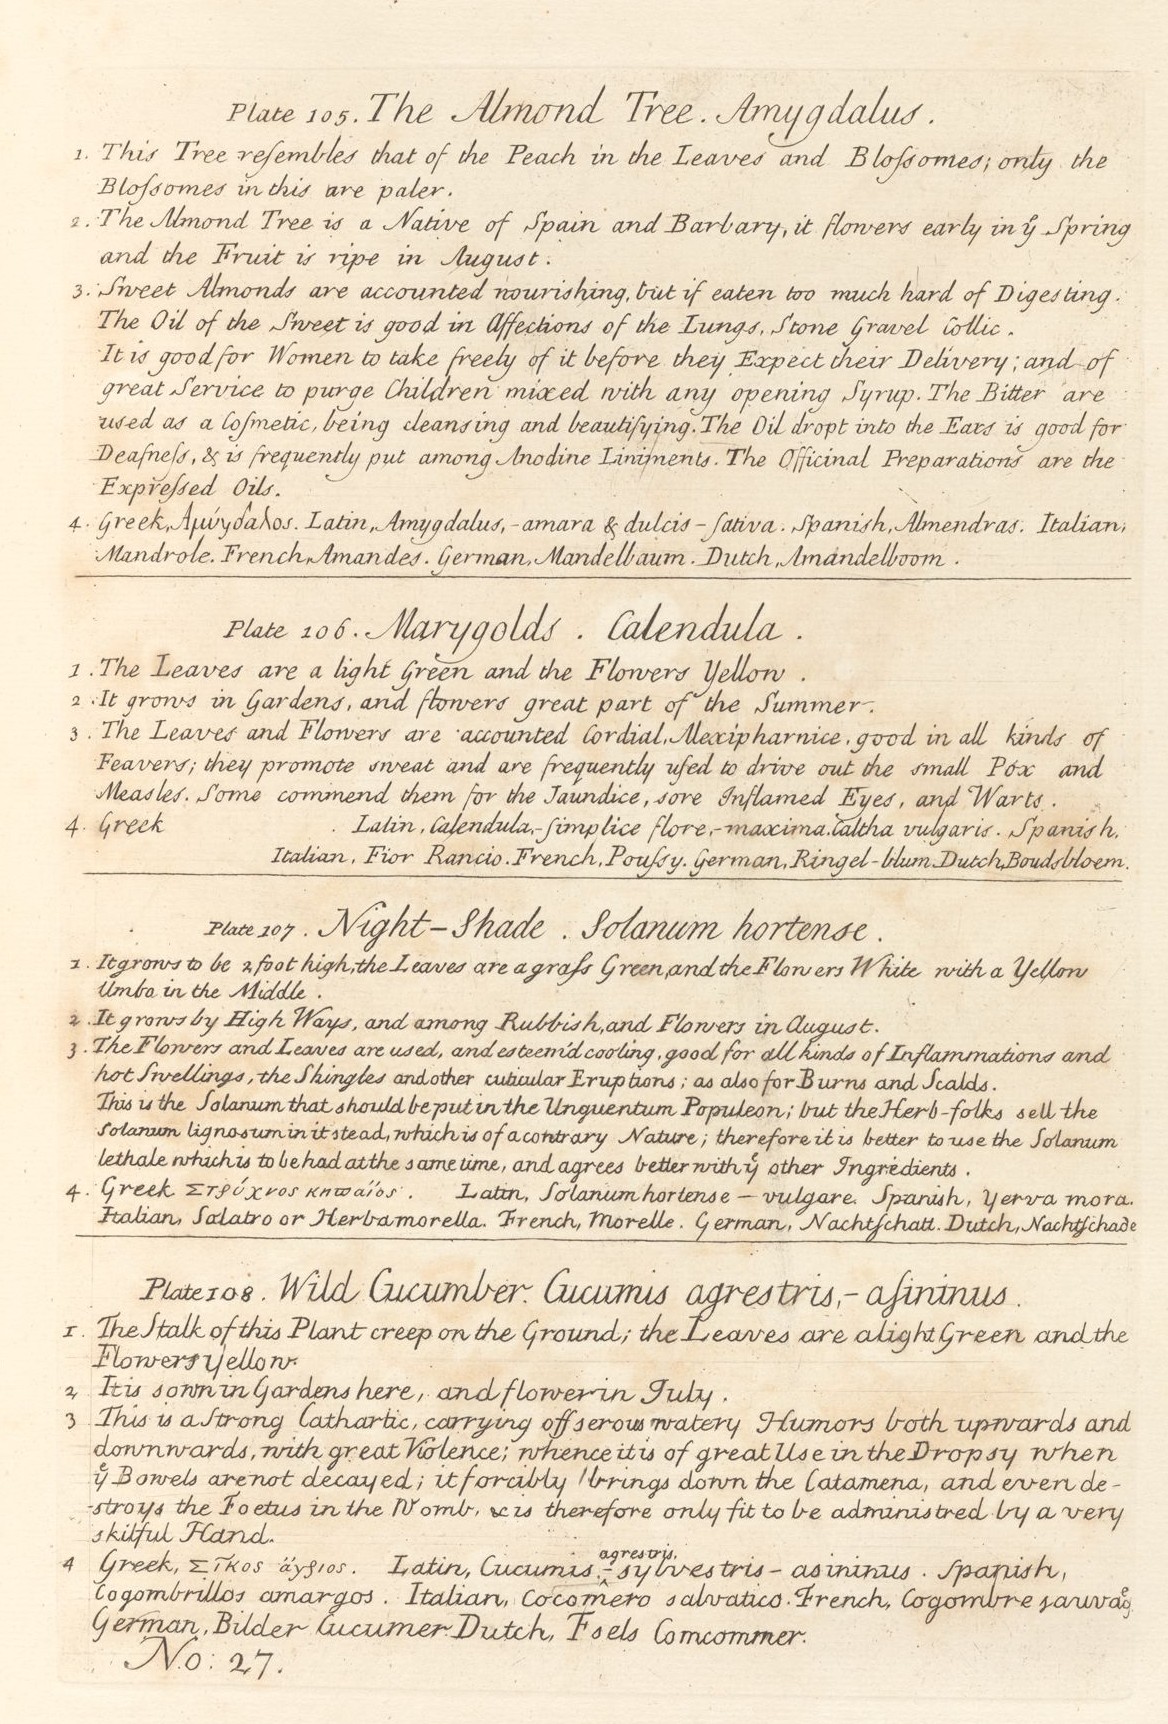 Plate 105. The Almond Tree. Amygdalus.
1. This Tree reſembles that of the Peach in the Leaves and Bloſsomes; only the
Bloſsomes in this are paler.
2. The Almond Tree is a Native of Spain and Barbary, it flowers early in yͤ Spring
and the Fruit is ripe in August.
3. Sweet Almonds are accounted nourishing, but if eaten too much hard of Digesting.
The Oil of the Sweet is good in Affections of the Lungs, Stone Gravel Collic.
It is good for Women to take freely of it before they Expect their Delivery; and of
great Service to purge Children mixed with any opening Syrup. The Bitter are
used as a Coſmetic, being cleansing and beautifying. The Oil dropt into the Ears is good for
Deafneſs, & is frequently put among Anodine Liniments. The Officinal Preparations are the
Expreſsed Oils.
4. Greek, Ἀμύγδαλος. Latin, Amygdalus, - amara & dulcis - ſativa. Spanish, Almendras. Italian,
Mandrole. French, Amandes. German, Mandelbaum. Dutch, Amandelboom.
Plate 106. Marygolds. Calendula.
1. The Leaves are a light Green and the Flowers Yellow.
2. It grows in Gardens, and flowers great part of the Summer.
3. The Leaves and Flowers are accounted Cordial, Alexipharnice, good in all kinds of
Feavers; they promote sweat and are frequently uſed to drive out the small Pox and
Measles. Some commend them for the Jaundice, sore Inflamed Eyes, and Warts.
4. Greek Latin, Calendula, - ſimplice flore, - maxima. Caltha vulgaris. Spanish,
Italian, Fior Rancio. French, Pouſsy. German, Ringel-blum. Dutch, Boudsbloem.
Plate 107. Night-Shade. Solanum hortense.
1. It grows to be 2 foot high, the Leaves are a graſs Green, and the Flowers White with a Yellow
Umbo in the Middle.
2. It grows by High Ways, and among Rubbish, and Flowers in August.
3. The Flowers and Leaves are used, and esteem'd cooling, good for all kinds of Inflammations and
hot Swellings, the Shingles and other cuticular Eruptions; as also for Burns and Scalds.
This is the Solanum that should be put in the Unguentum Populeon; but the Herb-folks sell the
Solanum lignosum in it stead, which is of a contrary Nature; therefore it is better to use the Solanum
lethale which is to be had at the same time, and agrees better with yͤ other Ingredients.
4. Greek Στρύχνος κηπαῖος. Latin, Solanum hortense - vulgare. Spanish, Yerva mora.
Italian, Salatro or Herbamorella. French, Morelle. German, Nachtſchatt. Dutch, Nachtſchade
Plate 108. Wild Cucumber. Cucumis agrestris, - aſininus.
1. The Stalk of this Plant creep on the Ground; the Leaves are a light Green and the
Flowers Yellow.
2 It is sown in Gardens here, and flower in July.
3 This is a Strong Cathartic, carrying off serous watery Humors both upwards and
downwards, with great Violence; whence it is of great Use in the Dropsy when
yͤ Bowels are not decayed; it forcibly brings down the Catamena, and even de-
stroys the Foetus in the Womb, & is therefore only fit to be administred by a very
skilful Hand.
4 Greek, Σῖκος ἄγριος. Latin, Cucumis, agrestris, - sylvestris - asininus. Spanish,
Cogombrillos amargos. Italian, Cocomero salvatico. French, Cogombre sauvage
German, Bilder Cucumer. Dutch, Esels Comcommer.
No: 27.